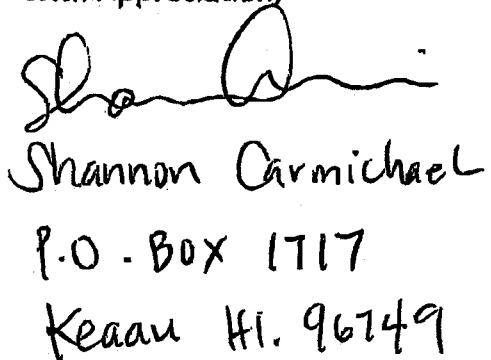 Shannon Carmichael
P.O. Box 1717
Keaau HI. 96749